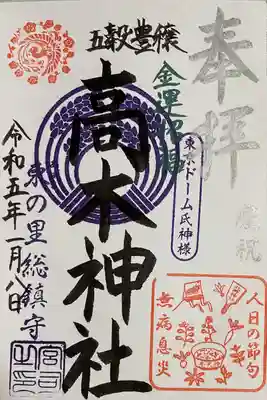 奉拝
慶祝
五穀豊穣
金運招福
東京ドーム氏神様
高木神社
東の里総鎮守
令和五年一月八日
人日の節句
無病息災